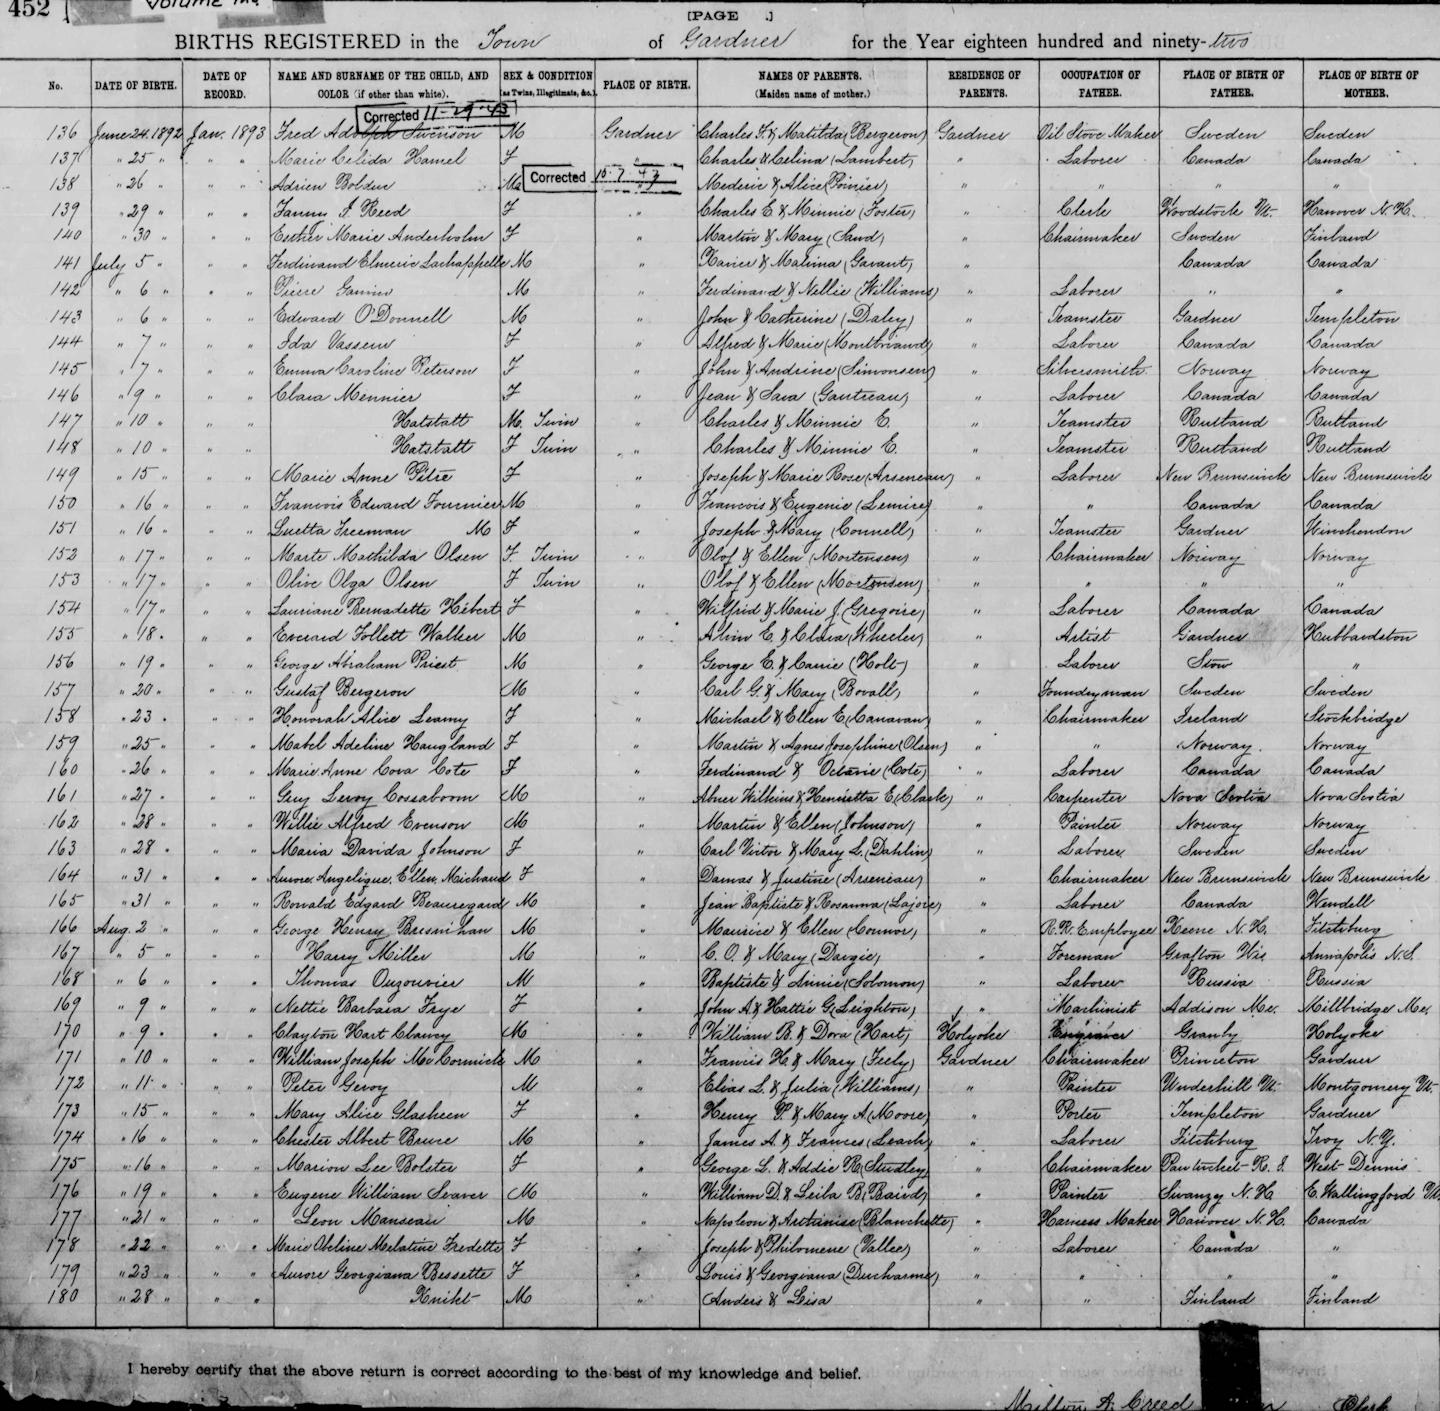 452
Volume
[PAGE .]
BIRTHS REGISTERED in the Town of Gardner for the Year eighteen hundred and ninety-two
No. DATE OF BIRTH. DATE OF RECORD. NAME AND SURNAME OF THE CHILD, AND COLOR (if other than white). SEX & CONDITION (as Twins, Illegitimate, &c.) PLACE OF BIRTH. NAMES OF PARENTS. (Maiden name of mother.) RESIDENCE OF PARENTS. OCCUPATION OF FATHER. PLACE OF BIRTH OF FATHER. PLACE OF BIRTH OF MOTHER.
Corrected 11-29-43
136 June 24. 1892 Jan. 1893 Fred Adolph Swenson M Gardner Charles F. & Matilda (Bergeron) Gardner Oil Stove Maker Sweden Sweden
137 " 25 " " " Marie Celida Hamel F " Charles & Celina (Lambert) " Laborer Canada Canada
138 " 26 " " " Adrien Bolduc M Corrected 10-7-43 " Mederic & Alice (Poirier) " " " "
139 " 29 " " " Fanny I. Reed F " Charles E. & Minnie (Foster) " Clerk Woodstock Vt. Hanover N. H.
140 " 30 " " " Esther Marie Anderholm F " Martin & Mary (Sand) " Chairmaker Sweden Finland
141 July 5 " " " Ferdinand Elmeric Lachappelle M " Xavier & Malvina (Gavant) " Canada Canada
142 " 6 " " " Pierre M " Ferdinand & Nellie (Williams) " Laborer " "
143 " 6 " " " Edward O'Donnell M " John & Catherine (Daley) " Teamster Gardner Templeton
144 " 7 " " " Ida Vasseur F " Alfred & Marie (Montbriand) " Laborer Canada Canada
145 " 7 " " " Emma Caroline Peterson F " John & Andrine (Simonsen) " Silversmith Norway Norway
146 " 9 " " " Clara Mennier F " Jean & Sara (Gautreau) " Laborer Canada Canada
147 " 10 " " " Hatstatt M. Twin " Charles & Minnie E. " Teamster Rutland Rutland
148 " 10 " " " Hatstatt F Twin " Charles & Minnie E. " Teamster Rutland Rutland
149 " 15 " " " Marie Anne Pitre F " Joseph & Marie Rose (Arseneau) " Laborer New Brunswick New Brunswick
150 " 16 " " " Francois Edward Fournier M " Francois & Eugenie (Lemire) " " Canada Canada
151 " 16 " " " Luretta Freeman M F " Joseph & Mary (Connell) " Teamster Gardner Winchendon
152 " 17 " " " Marte Mathilda Olsen F. Twin " Olof & Ellen (Mortensen) " Chairmaker Norway Norway
153 " 17 " " " Olive Olga Olsen F Twin " Olof & Ellen (Mortensen) " " " "
154 " 17 " " " Lauriane Bernadette Hébert F " Wilfrid & Marie J. (Gregoire) " Laborer Canada Canada
155 " 18 " " " Everard Follett Walker M " Alvin E. & Clara (Wheeler) " Artist Gardner Hubbardston
156 " 19 " " " George Abraham Priest M " George E. & Carrie (Holt) " Laborer Stow "
157 " 20 " " " Gustaf Bergeron M " Carl G. & Mary (Bovall) " Foundryman Sweden Sweden
158 " 23 " " " Honorah Alice Leamy F " Michael & Ellen E. (Canavan) " Chairmaker Ireland Stockbridge
159 " 25 " " " Mabel Adeline Haugland F " Martin & Agnes Josephine (Olsen) " " Norway Norway
160 " 26 " " " Marie Anne Cova Cote F " Ferdinand & Octavie (Cote) " Laborer Canada Canada
161 " 27 " " " Guy Leroy Cossaboom M " Abner Wilkins & Henrietta E. (Clark) " Carpenter Nova Scotia Nova Scotia
162 " 28 " " " Willie Alfred Evenson M " Martin & Ellen (Johnson) " Painter Norway Norway
163 " 28 " " " Maria Davida Johnson F " Carl Victor & Mary L. (Dahlin) " Laborer Sweden Sweden
164 " 31 " " " Aurore Angelique Ellen Michaud F " Damas & Justine (Arseneau) " Chairmaker New Brunswick New Brunswick
165 " 31 " " " Ronald Edgard Beauregard M " Jean Baptiste & Rosanna (Lajoie) " Laborer Canada Wendell
166 Aug. 2 " " " George Henry Bresnihan M " Maurice & Ellen (Connor) " R.R. Employee Keene N. H. Fitchburg
167 " 5 " " " Harry Miller M " C. O. & Mary (Dargie) " Foreman Grafton Wis Annapolis N.S.
168 " 6 " " " Thomas Ouzounier M " Baptiste & Annie (Solomon) " Laborer Russia Russia
169 " 9 " " " Nettie Barbara Frye F " John A. & Hattie G. (Leighton) " Machinist Addison Me. Millbridge Me.
170 " 9 " " " Clayton Hart Clancy M " William B. & Dora (Hart) Holyoke Engraver Granby Holyoke
171 " 10 " " " William Joseph McCormick M " Francis H. & Mary (Feely) Gardner Chairmaker Princeton Gardner
172 " 11 " " " Peter Gevoy M " Elias L. & Julia (Williams) " Painter Underhill Vt. Montgomery Vt.
173 " 15 " " " Mary Alice Glasheen F " Henry P. & Mary A. (Moore) " Porter Templeton Gardner
174 " 16 " " " Chester Albert Bruce M " James A. & Frances (Leach) " Laborer Fitchburg Troy N. Y.
175 " 16 " " " Marion Lee Bolster F " George L. & Addie R. (Studley) " Chairmaker Pawtucket R. I. West Dennis
176 " 19 " " " Eugene William Seaver M " William D. & Leila B. (Baird) " Painter Swanzy N. H. E. Wallingford Vt.
177 " 21 " " " Leon Manseau M " Napoleon & Arthemise (Blanchette) " Harness Maker Hanover N. H. Canada
178 " 22 " " " Marie Obeline Melatine Fredette F " Joseph & Philomene (Vallee) " Laborer Canada "
179 " 23 " " " Aurore Georgiana Bessette F " Louis & Georgiana (Ducharme) " " " "
180 " 28 " " " Knikt M " Anders & Lisa " " Finland Finland
I hereby certify that the above return is correct according to the best of my knowledge and belief.
Milton A. Creed Clerk